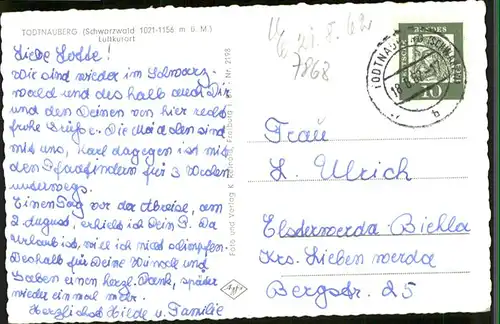 TODTNAUBERG (Schwarzwald 1021-1156 m ü. M.)
Luftkurort
Liebe Lotte!
Wir sind wieder im Schwarz-
wald und deshalb auch Dir
und den Deinen von hier recht
frohe Grüße. Die Mädlen sind
mit uns, Karl dagegen ist mit
den Pfadfindern für 3 Wochen
unterwegs.
Einen Tag vor der Abreise, am
2. August, erhielt ich Dein P. Da
Urlaub ist, will ich nicht schimpfen.
Deshalb für Deine Wünsche und
Gaben einen herzl. Dank, später
wieder einmal mehr.
Herzlichst Hilde u. Familie
Foto und Verlag K. Freiburg Nr. 2198
Agfa
7868
DEUTSCHE BUNDESPOST
10
TODTNAUBERG (SCHWARZW)
b
Frau
L. Ulrich
Elsterwerda Biehla
Krs. Liebenwerda
Bergstr. 25